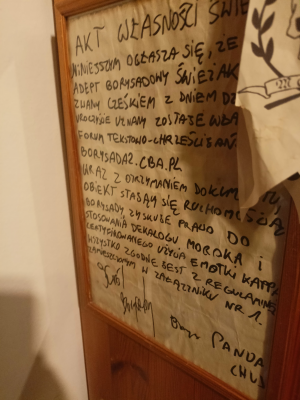 AKT WŁASNOŚCI ŚWIE
NINIEJSZYM OGŁASZA SIĘ, ŻE
ADEPT BORYSADOWY ŚWIEŻAK
ZWANY CZEŚKIEM Z DNIEM DZ
UROCZYŚCIE UZNANY ZOSTAJE WŁA
FORUM TEKSTOWO-CHRZEŚCIJAŃS
BORYSADA2.CBA.PL
WRAZ Z OTRZYMANIEM DOKUM TU,
OBIEKT STAJAŁ SIĘ RUCHOMOŚCIĄ
BORYSADY ZYSKUJE PRAWO DO
STOSOWANIA DEKALOGU MORDKA I
CERTYFIKOWANEGO UŻYCIA EMOTKI KAPPA
WSZYSTKO ZGODNE JEST Z REGULAMINEM
ZAMIESZCZONYM W ZAŁĄCZNIKU NR 1.
PANDA